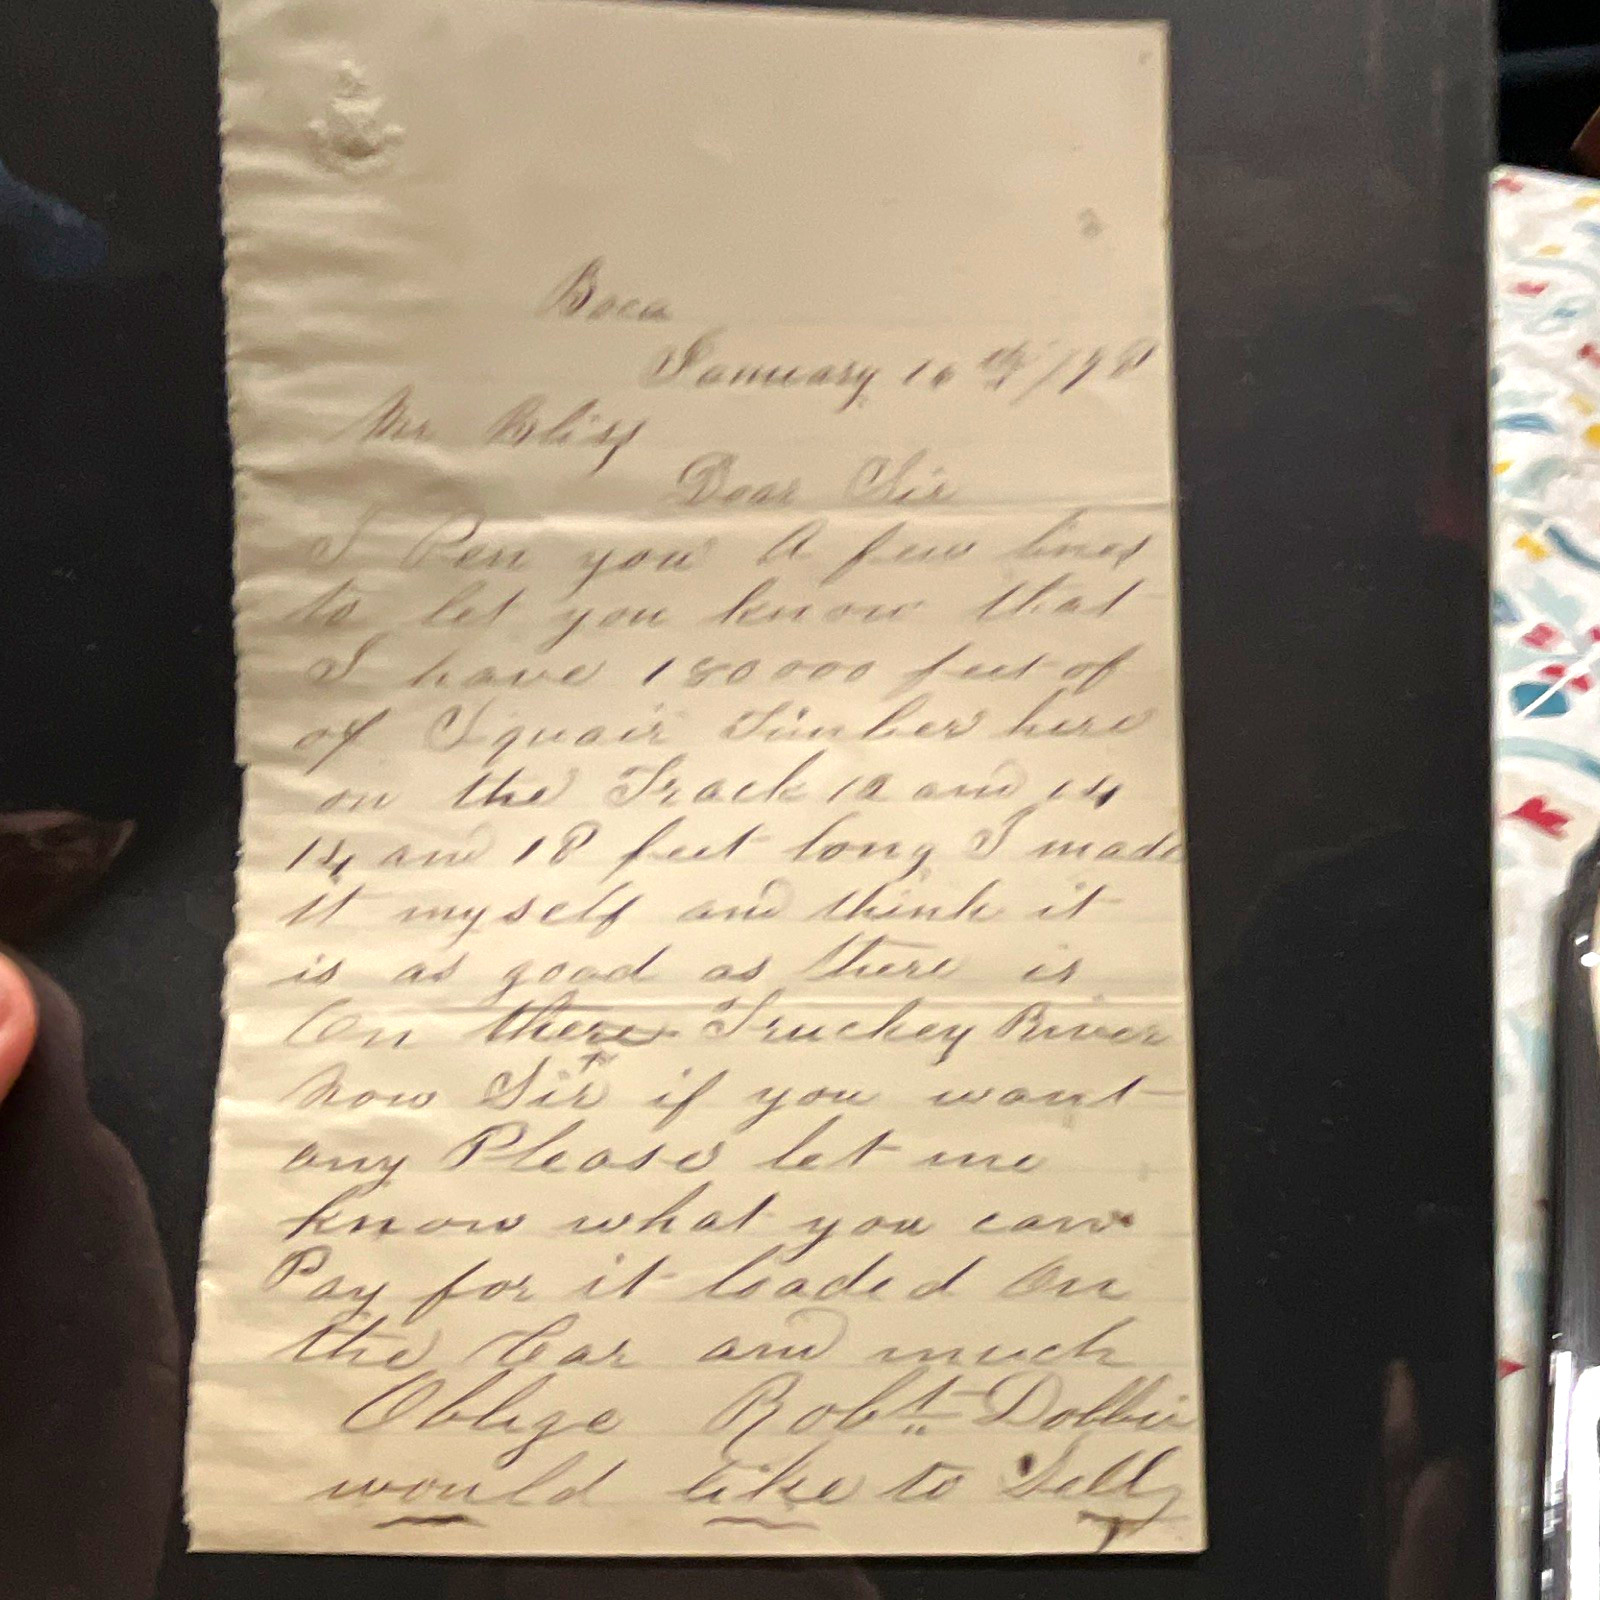 Boca
January 16th /78
Mr Bliss
Dear Sir
I Pen you A few lines
to let you know that
I have 180000 feet of
of Squair Timber here
on the Track 12 and 14
14 and 18 feet long I made
it myself and think it
is as good as there is
On there Truckey River
Now Sir if you want
any Please let me
know what you can
Pay for it loaded On
the Car and much
Oblige Robt Dobbie
would like to Sell